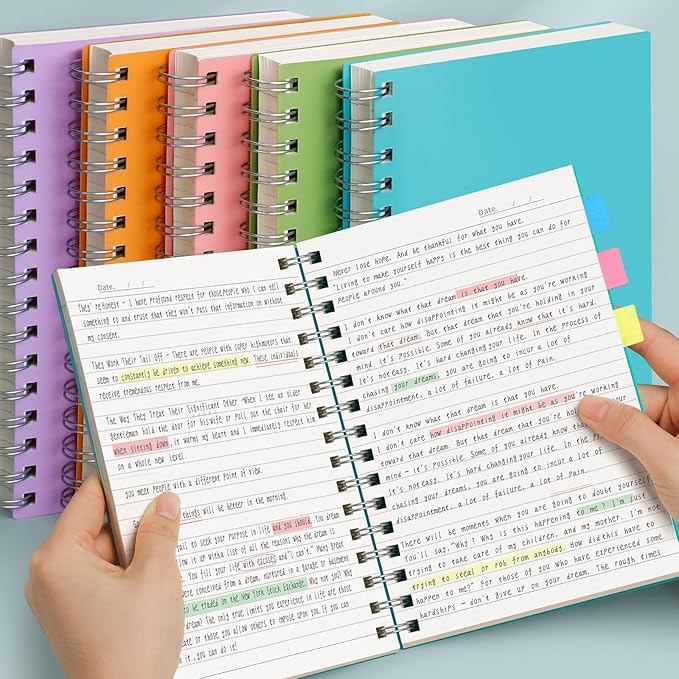 Date.   /   /
They're Honest - I have profound respect for those people who I can tell
something to and eruse that they won't pass that information on without
my consent.
They Work Their Tail Off - There are people with super highmotors that
seem to constantly be driven to achieve something new. These individuals
receive tremendous respect from me.
The Way They Treat Their Significant Other - When I see an older
gentleman hold the door for his wife or pull out the chair for her
when sitting down, it warms my heart and I immediately respect him
on a whole new level.
you meet people with a different point of view.
things will be better in the morning.
fail to seek your purpose in life and you should. you dream
with a list of all the reasons why the dream is
You fill your life with excuses and "I can't." Many great
were conceived from a dream, nurtured in a garage or basement
to be traded on the New York Stock Exchange. Why not you? Why
dream? The only true limits you experience in life are those
create or those you allow others to impose upon you. If you can
it, you can do it!
Date.   /   /
Never lose hope. And be thankful for what you have.
"Living to make yourself happy is the best thing you can do for
people around you."
I don't know what that dream is that you have.
I don't care how disappointing it might be as you're working
toward that dream. But that dream that you're holding in your
mind - it's possible. Some of you already know that it's hard,
it's not easy. It's hard changing your life. In the process of
chasing your dreams, you are going to incur a lot of
disappointment, a lot of failure, a lot of pain.
I don't know what that dream is that you have.
I don't care how disappointing it might be as you're working
toward that dream. But that dream that you're holding
mind - it's possible. Some of you already know that
it's not easy. It's hard changing your life. In the process
chasing your dreams, you are going to incur a lot
disappointment, a lot of failure, a lot of pain.
There will be moments when you are going to doubt yourself
You'll say, "Why? Why is this happening to me? I'm just
trying to take care of my children, and my mother. I'm not
trying to steal or rob from anybody. How did this have to
happen to me?" For those of you who have experienced some
hardships - don't give up on your dream. The rough times